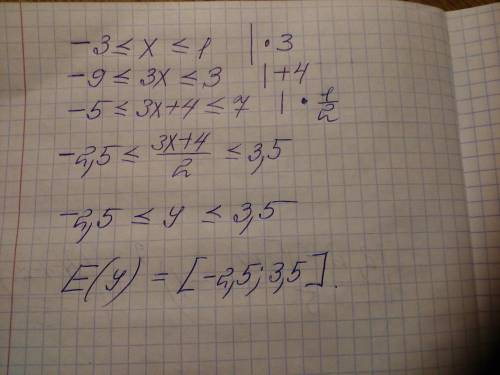 -3 ≤ x ≤ 1 | · 3
-9 ≤ 3x ≤ 3 | +4
-5 ≤ 3x+4 ≤ 7 | · 1/2
-2,5 ≤ (3x+4)/2 ≤ 3,5
-2,5 ≤ y ≤ 3,5
E(y) = [-2,5; 3,5].